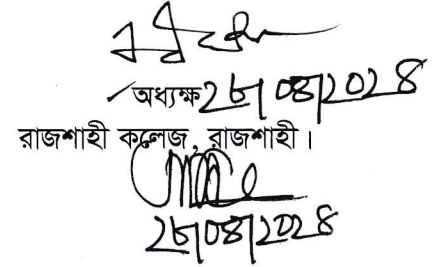 অধ্যক্ষ ২৮/০৪/২০২৪
রাজশাহী কলেজ, রাজশাহী।
২৮/০৪/২০২৪